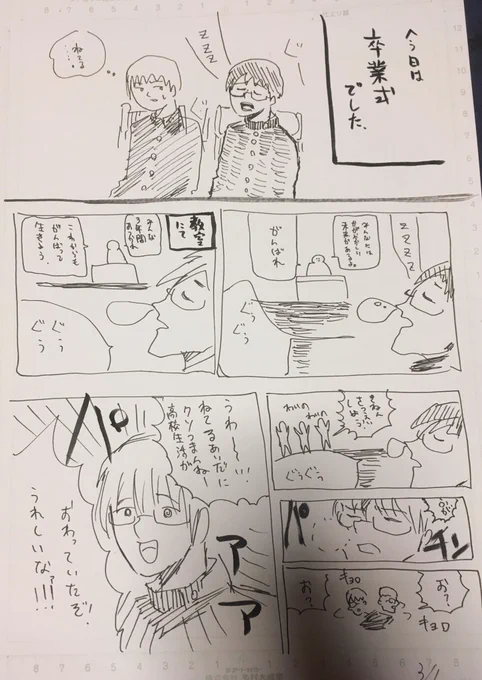 今日は
卒業式
でした.
ZZZ
ぐー
ぐ
ねてる
……
ZZZZ
みんなには
かがやかしい
未来があるよ。
がんばれ
ぐぅ
ぐぅ
教室
にて
みんな
3年間
ありがとう
これからも
がんばって
生きろう。
ぐぅ
ぐぅ
きねん
さつえい
しよう
わいの
わいの
ぐぅぐぅ
ふが
パ
チン
お?
キョロ
キョロ
お?
うわ〜〜い!
ねてるあいだに
クソつまんねー
高校生活が
おわっていたぞ.
うれしいなァ!!!
パ
ア
ア
3/1